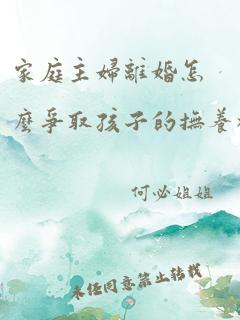 家庭主婦離婚怎
麼爭取孩子的撫養
何必姐姐
未经同意禁止转载